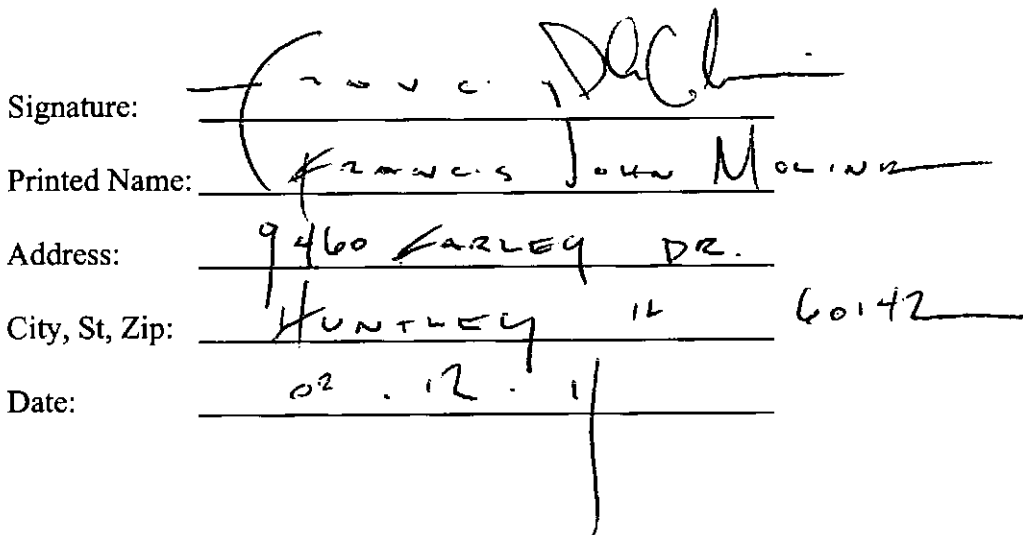 Signature:
Printed Name: FRANCIS JOHN MOLINA
Address: 9460 FARLEY DR.
City, St, Zip: HUNTLEY IL 60142
Date: 02.12.11